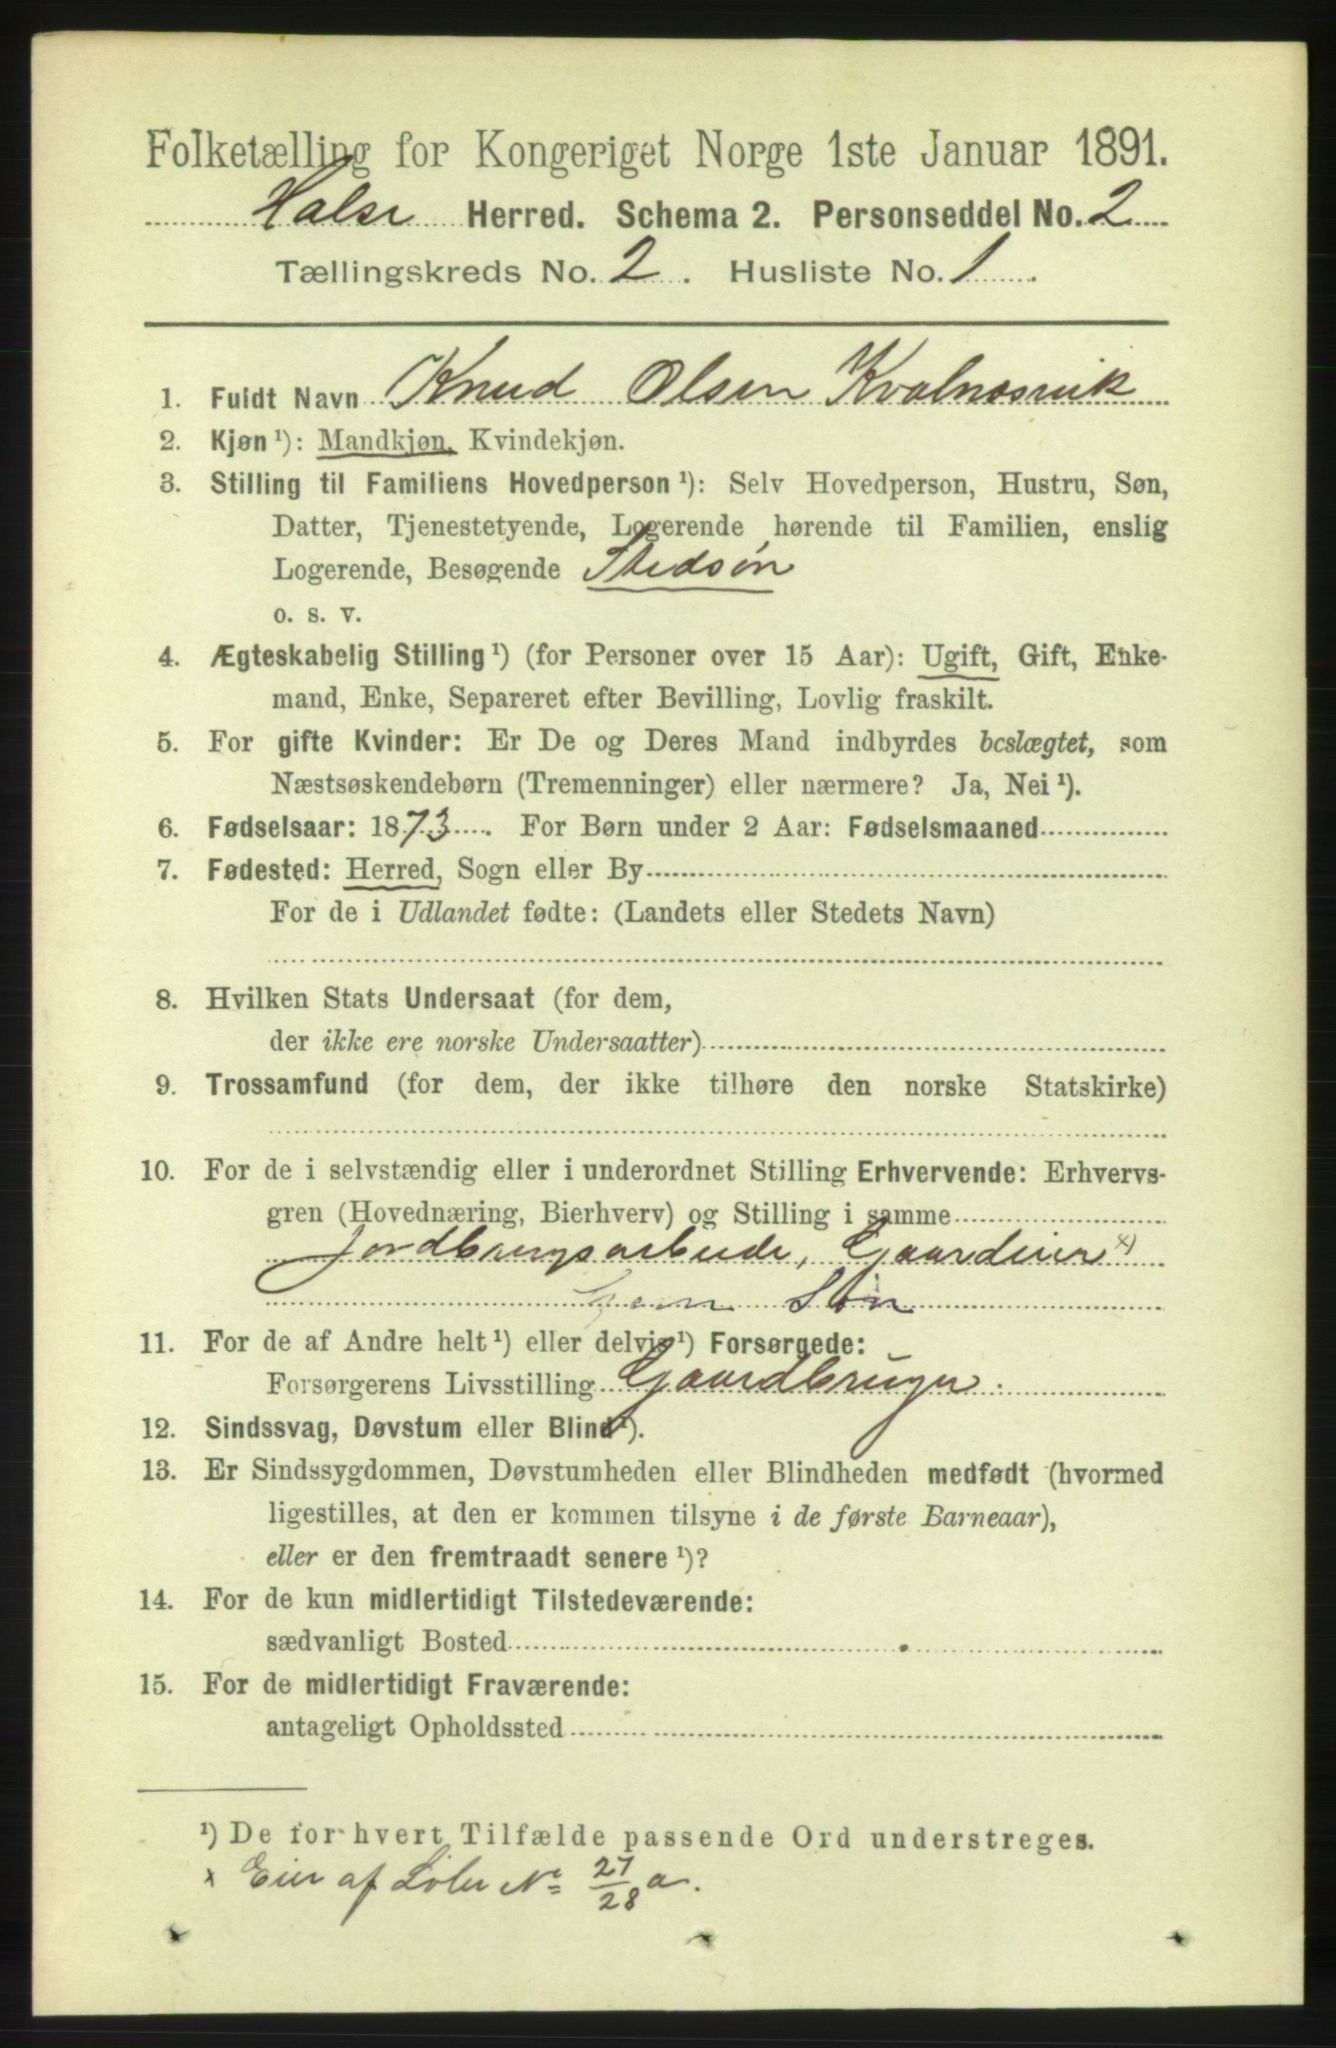 Folketælling for Kongeriget Norge 1ste Januar 1891.
Halse Herred. Schema 2. Personseddel No. 2
Tællingskreds No. 2. Husliste No. 1.
1. Fuldt Navn Knud Olsen Kvalnæsvik
2. Kjøn ¹): Mandkjøn, Kvindekjøn.
3. Stilling til Familiens Hovedperson ¹): Selv Hovedperson, Hustru, Søn,
Datter, Tjenestetyende, Logerende hørende til Familien, enslig
Logerende, Besøgende Stedsøn
o. s. v.
4. Ægteskabelig Stilling ¹) (for Personer over 15 Aar): Ugift, Gift, Enke-
mand, Enke, Separeret efter Bevilling, Lovlig fraskilt.
5. For gifte Kvinder: Er De og Deres Mand indbyrdes beslægtet, som
Næstsøskendebørn (Tremenninger) eller nærmere? Ja, Nei ¹).
6. Fødselsaar: 1873. For Børn under 2 Aar: Fødselsmaaned
7. Fødested: Herred, Sogn eller By
For de i Udlandet fødte: (Landets eller Stedets Navn)
8. Hvilken Stats Undersaat (for dem,
der ikke ere norske Undersaatter)
9. Trossamfund (for dem, der ikke tilhøre den norske Statskirke)
10. For de i selvstændig eller i underordnet Stilling Erhvervende: Erhvervs-
gren (Hovednæring, Bierhverv) og Stilling i samme
Jordbrugsarbeide, Gaardeier ×)
Søn
11. For de af Andre helt ¹) eller delvis ¹) Forsørgede:
Forsørgerens Livsstilling Gaardbruger.
12. Sindssvag, Døvstum eller Blind ¹).
13. Er Sindssygdommen, Døvstumheden eller Blindheden medfødt (hvormed
ligestilles, at den er kommen tilsyne i de første Barneaar),
eller er den fremtraadt senere ¹)?
14. For de kun midlertidigt Tilstedeværende:
sædvanligt Bosted
15. For de midlertidigt Fraværende:
antageligt Opholdssted
¹) De for hvert Tilfælde passende Ord understreges.
× Eier af Løbe № 27/28 a.